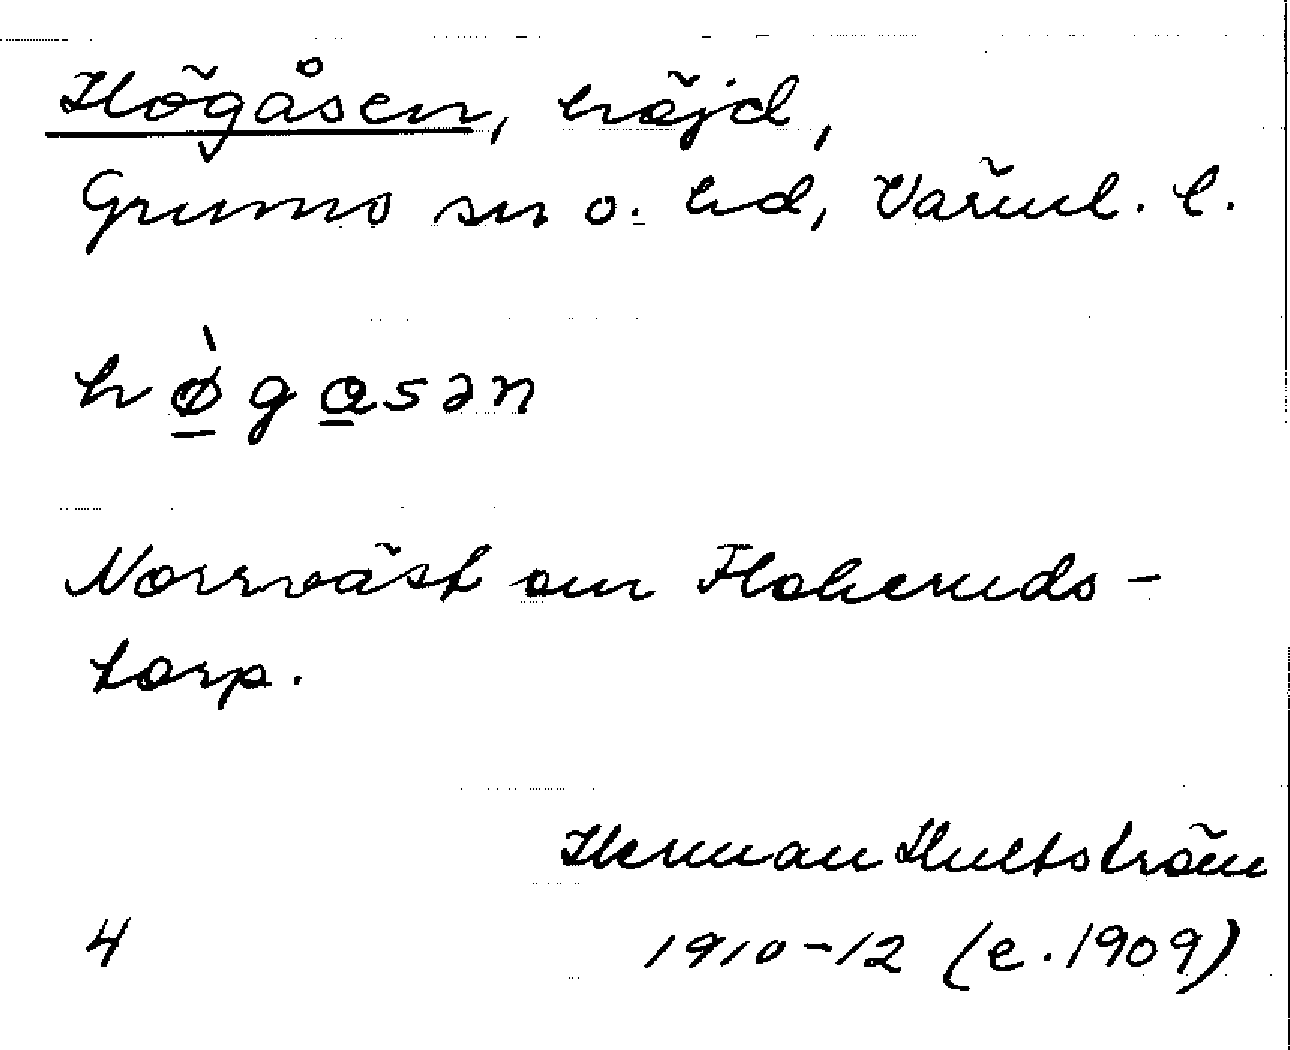 Högåsen, höjd,
Grums sn o. hd, Värml. l.
hø̠̀ga̠sən
Norrväst om Flokeruds-
torp.
Herman Hultström
4 1910-12 (e. 1909)